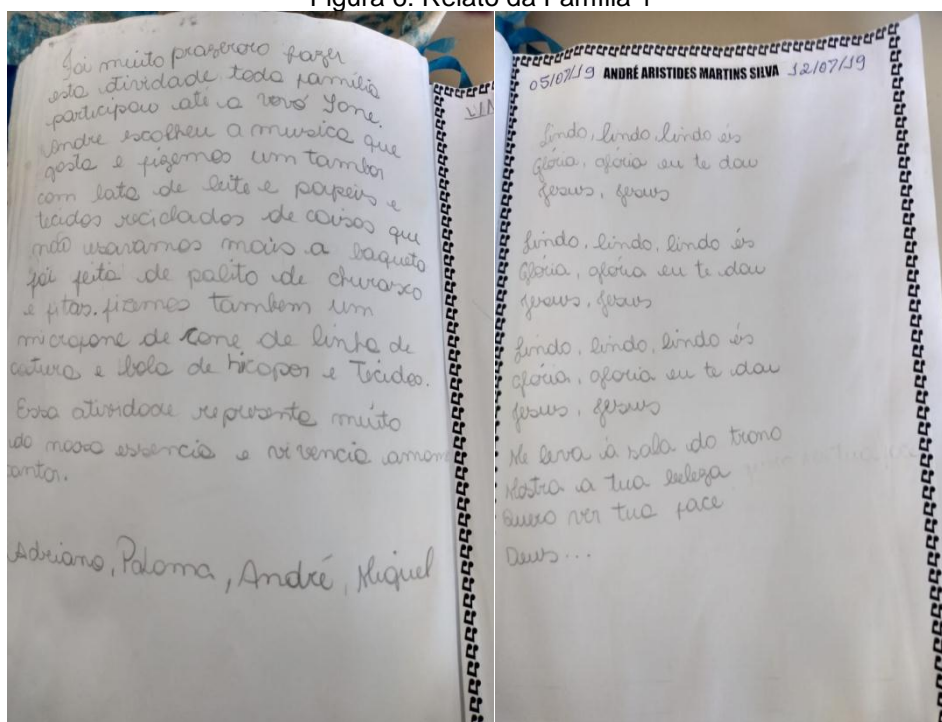 Figura 6: Relato da Família 1
Foi muito prazeroso fazer
esta atividade toda família
participou até a vovó Ione.
Andre escolheu a musica que
gosta e fizemos um tambor
com lata de leite e papeis e
tecidos reciclados de coisas que
não usaramos mais a baqueta
foi feita de palito de churasco
e fitas. fizemos tambem um
microfone de cone de linha de
custura e bola de hicopor e Tecidos.
Essa atividade representa muito
da nossa essencia e vivencia amamos
cantar.
Adriano, Paloma, André, Miguel
05/07/19 ANDRÉ ARISTIDES MARTINS SILVA 12/07/19
Lindo, lindo, lindo és
Glória, glória eu te dou
Jesus, Jesus
Lindo, lindo, lindo és
Glória, glória eu te dou
Jesus, Jesus
Lindo, lindo, lindo és
glória, gloria eu te dou
Jesus, Jesus
Me leva à sala do trono
Mostra a tua beleza
Quero ver tua face
Deus...